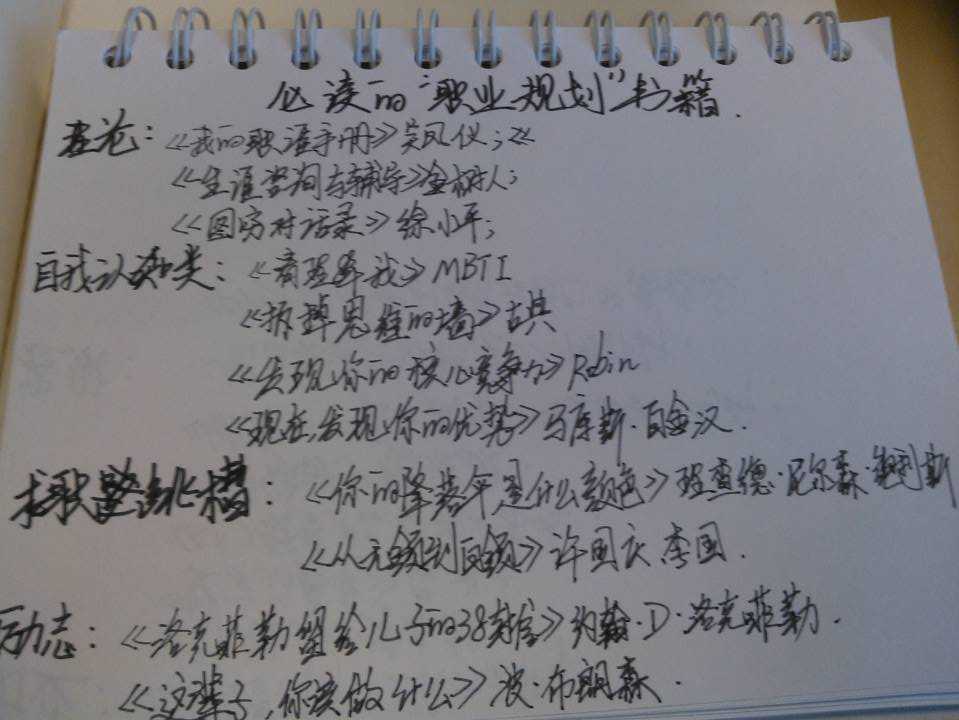 必读的“职业规划”书籍.
基础:《我的职涯手册》吴凤仪;《
《生涯咨询与辅导》金树人;
《图穷对话录》徐小平;
自我认知类:《请理解我》MBTI
《拆掉思维的墙》古典
《发现你的核心竞争力》Robin
《现在,发现你的优势》马库斯·白金汉.
求职 跳槽:《你的降落伞是什么颜色》理查德·尼尔森·鲍利斯
《从 到 》许国庆.李国.
励志:《洛克菲勒留给儿子的38封信》约翰·D·洛克菲勒.
《这辈子,你该做什么》波·布朗森.